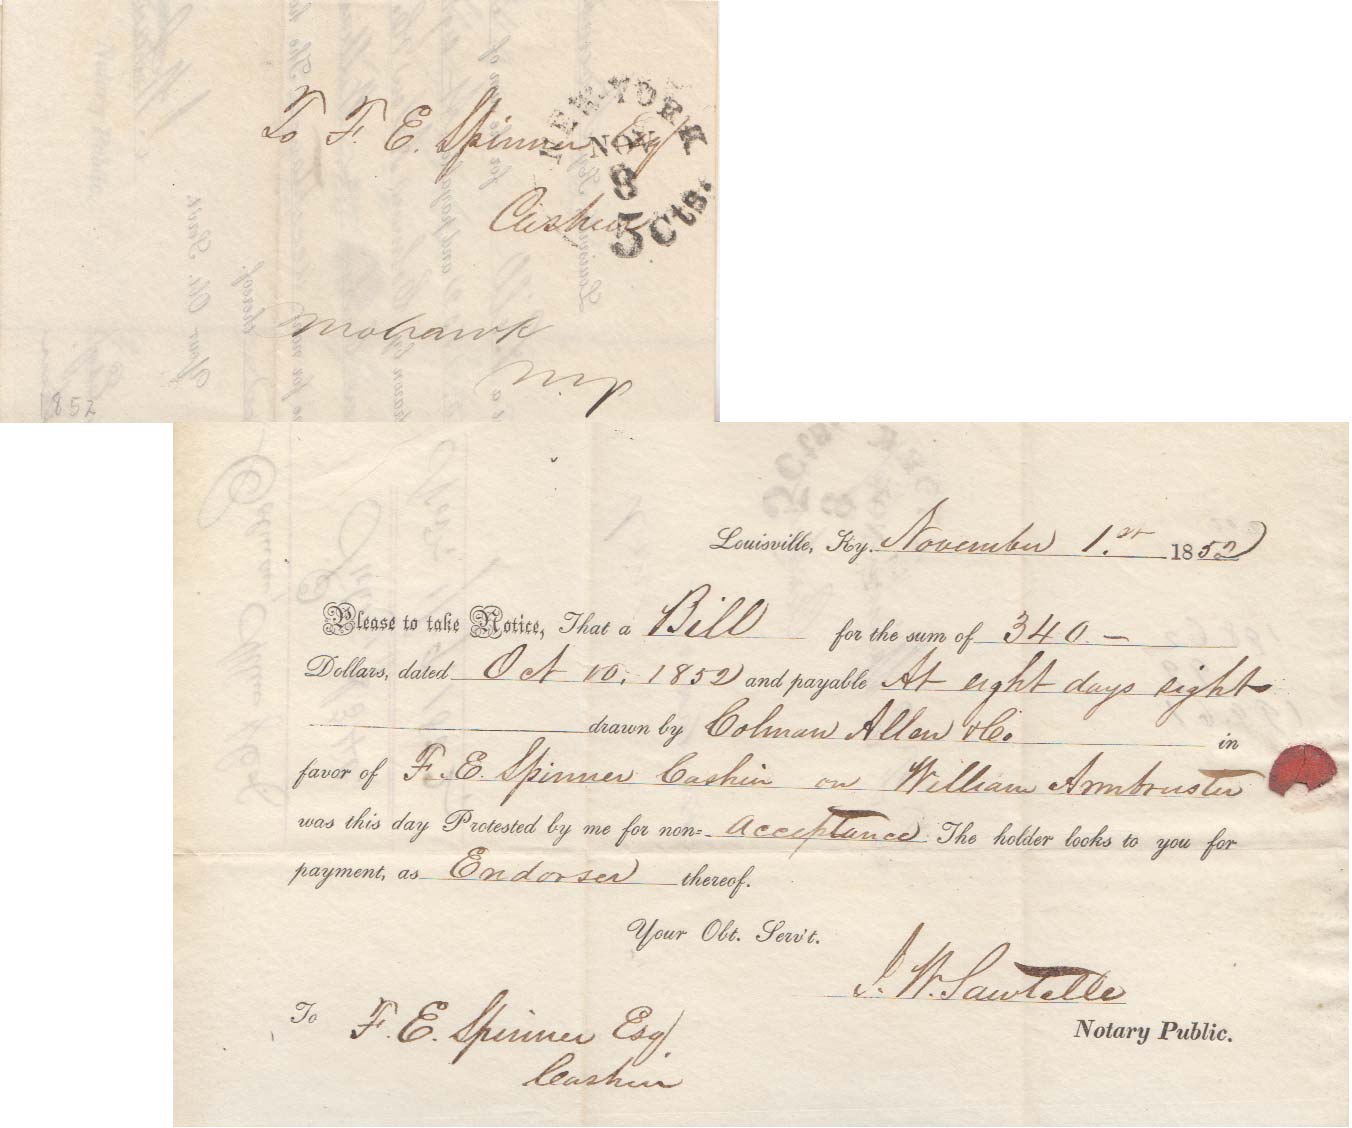 To F. E. Spinner Esq
Cashier
Mohawk
N.Y
NEW-YORK
NOV
8
5 Cts.
852
Louisville, Ky. November 1.st 1852
Please to take Notice, That a Bill for the sum of 340.—
Dollars, dated Oct 10, 1852 and payable At eight days sight
drawn by Colman Allen & Co. in
favor of F. E. Spinner Cashier on William Armbruster
was this day Protested by me for non= acceptance The holder looks to you for
payment, as Endorser thereof.
Your Obt. Serv't.
J. W. Sawtelle
Notary Public.
To F. E. Spinner Esq
Cashier